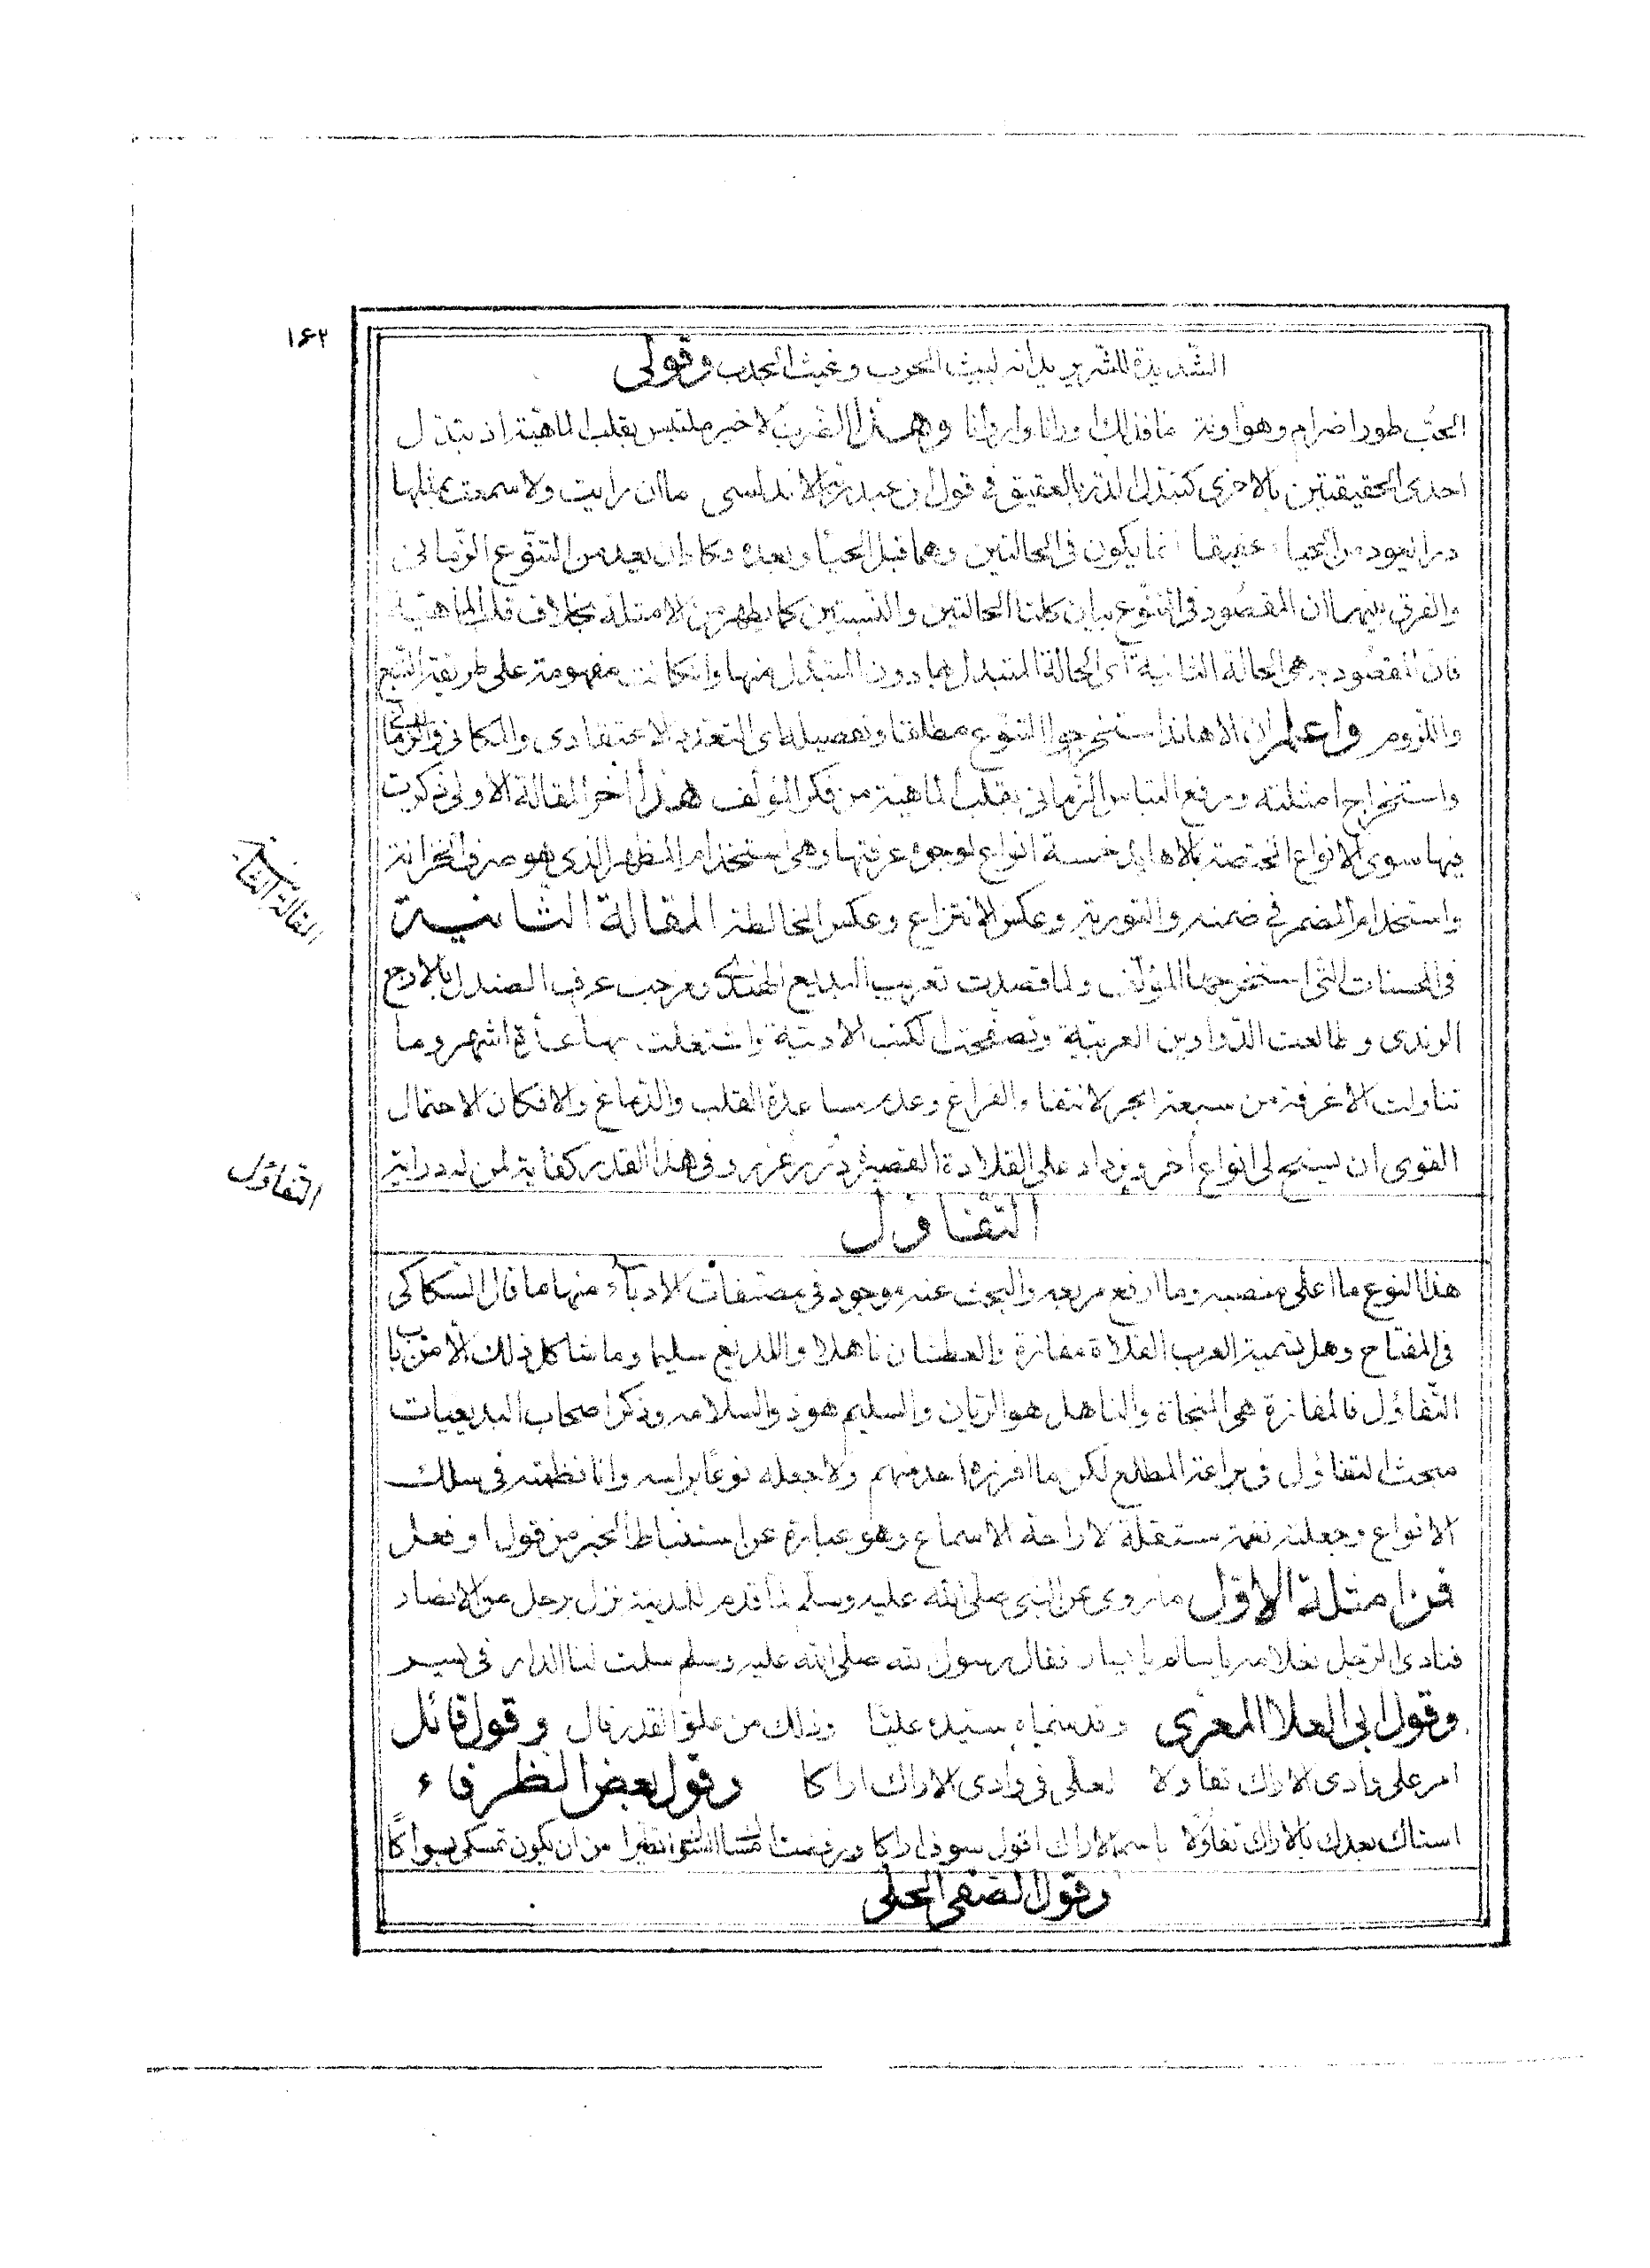 ١٦٢
الشديدة للشرير يدانه ليث الحرب وغيث الجدب وقولى
الحبّ طورا ضرام وهو آونة ماء فذلك ورانا واروانا وهذا الضرب الاخير ملتبس بقلب الماهية اذ يتبدل
احدى الحقيقتين بالاخرى كتبدل الدر بالعقيق فى قول ابن عبد ربه الاندلسى ما ان رايت ولا سمعت بمثلها
درا يعود من الحياء عقيقا انما يكون فى الحالتين وهما قبل الحيا وبعده فكاد ان يعد من التنوع الزمانى
والفرق بينهما ان المقصود فى التنوع بيان كلتا الحالتين والنسبتين كما يظهر من الامثلة بخلاف قلب الماهية
فان المقصود به هى الحالة الثانية اى الحالة المتبدل بها دون المتبدل منها وان كانت مفهومة على طريقة التبع
واللزوم واعلم ان الاهاند استخرجوا التنوع مطلقا وتفصيله اى الاعتقادى والمكانى والزمانى
واستخراج امثلته ورفع التباس الزمانى بقلب الماهية من فكر المؤلف هذا آخر المقالة الاولى ذكرت
فيها سوى الانواع المختصة بالاهاند خمسة انواع لوجوه عرفتها وهى استخدام المظهر الذى هو صرف الخزانة
واستخدام المضمر فى ضمنه والتورية وعكس الانتزاع وعكس المخالطة المقالة الثانية
المقالة الثانية
فى المحسنات التى استخرجها المؤلف ولما قصدت تعريب البديع الهندى ومزجت عرف الصندل بالارج
الرندى وطالعت الدواوين العربية وتصفحت الكتب الادبية واشتغلت بها اربع اشهر وما
تناولت الا غرفة من سبعة ابحر لانتفاء الفراغ وعدم مساعدة القلب والدماغ والا فكان الاحتمال
القوى ان يسنح لى انواع أخر ويزداد على القلادة درر غرر وفى هذا القدر كفاية لمن له دراية
التفاؤل
التفاؤل
هذا النوع ما اعلى منصبه وما ارفع مربعه والبحث عنه موجود فى مصنفات الادباء منها ما قال السكاكى
فى المفتاح وهل تسمية العرب الفلاة مفازة والعطشان ناهلا واللديغ سليما وما شاكل ذلك الا من باب
التفاؤل فالمفازة هى المنجاة والناهل هو الريان والسليم هو ذو السلامة وذكر اصحاب البديعيات
مبحث التفاؤل فى براعة المطلع لكن ما افرزه احد منهم ولا جعله نوعا براسه وانا نظمته فى سلك
الانواع وجعلته نغمة مستقلة لاراحة الاسماع وهو عبارة عن استنباط الخير من قول او فعل
فمن امثلة الاول ما روى عن النبى صلى الله عليه وسلم لما قدم المدينة نزل برجل من الانصار
فنادى الرجل بغلامه يا سالم يا يسار فقال رسول الله صلى الله عليه وسلم سلمت لنا الدار فى يسر
وقول ابى العلا المعرى وقد سماه سيده عليّا وذلك من علو القدر فال وقول قائل
امر على وادى الاراك تفاؤلا لعلى فى وادى الاراك اراكا وقول بعض الظرفاء
استاك بعدك بالاراك تفاؤلا باسم الاراك اقول سوف اراكا ورفضت من ان يكون تمسكى بسواكا
وقول الصفى الحلى